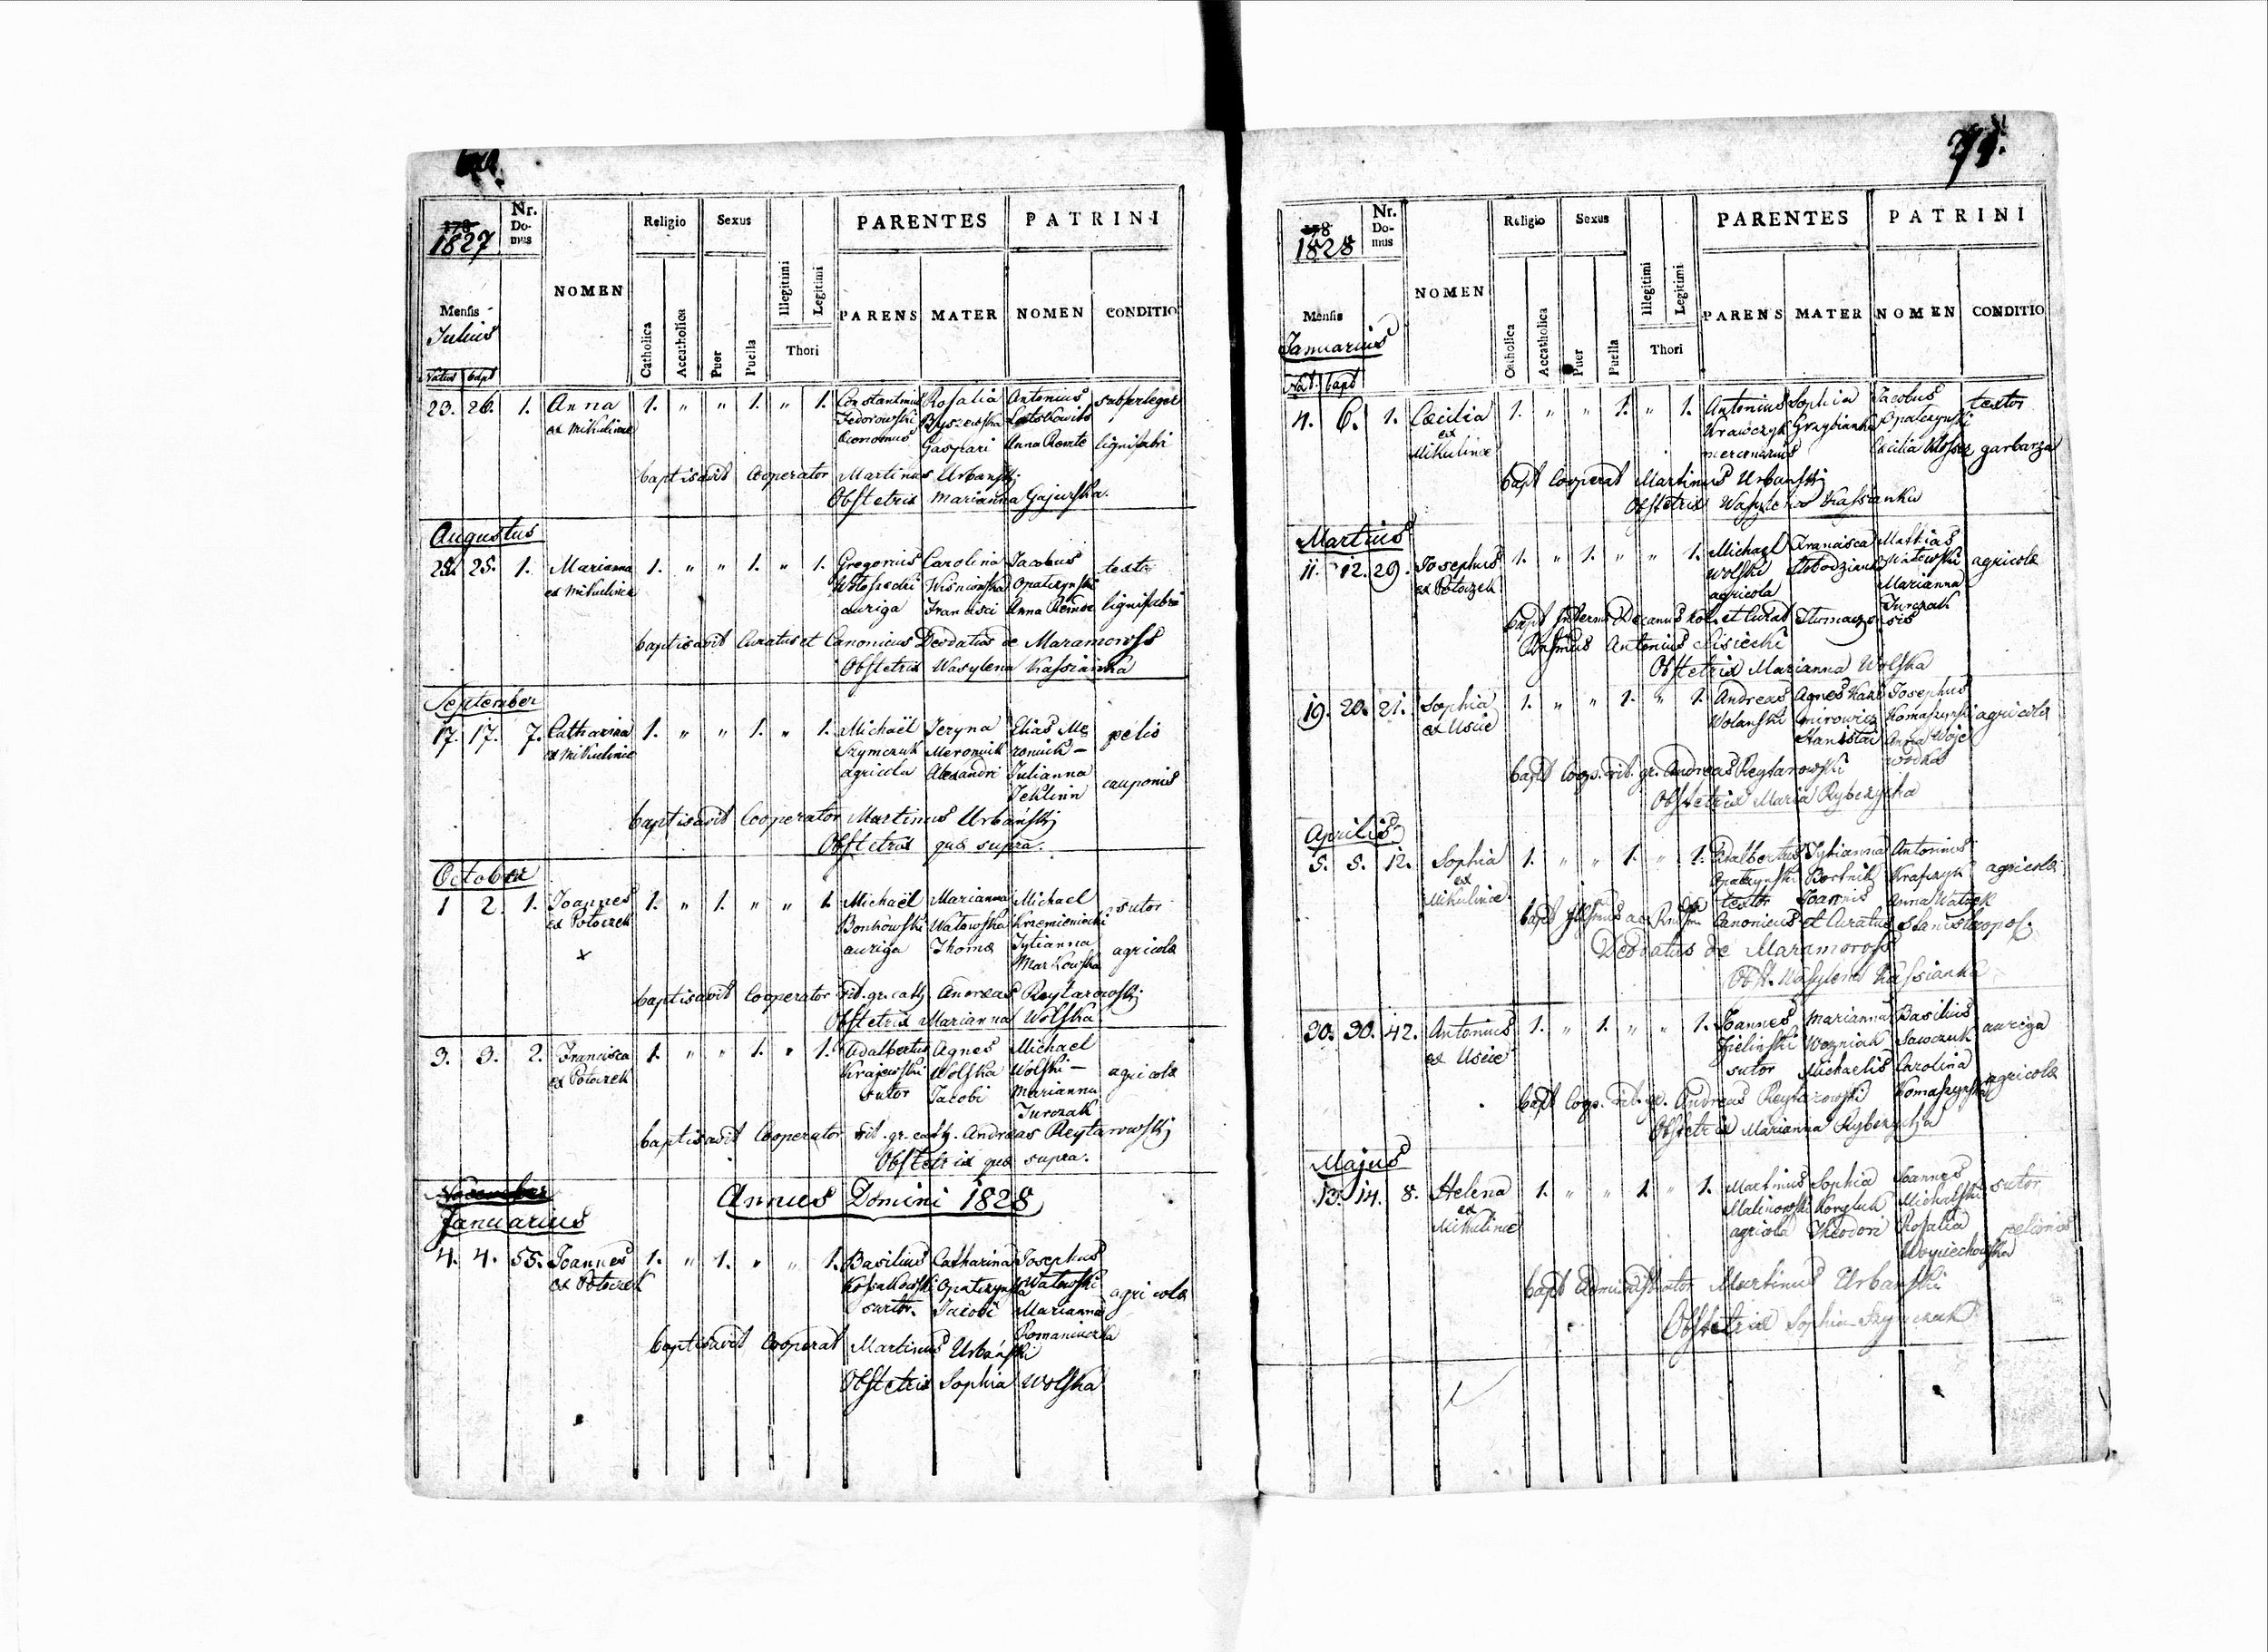 1827
Nr. Domus
NOMEN
Religio
Sexus
Illegitimi
Legitimi
Thori
PARENTES
PATRINI
Mensis
Julius
Catholica
Accatholica
Puer
Puella
PARENS
MATER
NOMEN
CONDITIO
Natus bapt
23. 26. 1. Anna 1. " " 1. " 1. Constantinus Rosalia Antonius
ex Mikulince Fedorowski
Gaspari Anna lignifabri
baptisavit Cooperator Martinus Urbański
Obstetrix Marianna Gajewska.
Augustus
25. 25. 1. Marianna 1. " " 1. " 1. Gregorius Carolina Jacobus
ex Mikulince Wiśniowska Opatczyński
auriga Francisci Anna lignifabri
baptisavit Curatus et Canonicus Deodatus de Maramoross
Obstetrix Wasylena Kassianka
September
17. 17. 7. Catharina 1. " " 1. " 1. Michaël Jryna Elias Me
ex Mikulince Szymczuk Meroniuk roniuk – pelio
agricola Alexandri Julianna
cauponis
baptisavit Cooperator Martinus Urbański
Obstetrix quæ supra.
October
1 2. 1. Joannes 1. " 1. " " 1. Michaël Marianna Michael sutor
ex Potoczek Bonkowski Watowska Krzemieniecki
auriga Thomæ Tytianna agricolæ
x Markowska
baptisavit Cooperator rit. gr. cath. Andreas Reytarowski
Obstetrix Marianna Wolska
3. 3. 2. Francisca 1. " " 1. " 1. Adalbertus Agnes Michael
ex Potoczek Krajewski Wolska Wolski – agricolæ
sutor Jacobi Marianna
Jurczak
baptisavit Cooperator rit. gr. cath. Andreas Reytarowski
Obstetrix quæ supra.
Annus Domini 1828
Januarius
4. 4. 55. Joannes 1. " 1. " " 1. Basilius Catharina Josephus
ex Potoczek Opatczyńska Watowski agricolæ
sartor. Jacobi Marianna
Romaniuczka
baptisavit Cooperat Martinus Urbański
Obstetrix Sophia Wolska
1828
Nr. Domus
NOMEN
Religio
Sexus
Illegitimi
Legitimi
Thori
PARENTES
PATRINI
Mensis
Januarius
Catholica
Accatholica
Puer
Puella
PARENS
MATER
NOMEN
CONDITIO
Nat. bapt
4. 6. 1. Cæcilia 1. " " 1. " 1. Antonius Sophia Jacobus textor
ex Krawczyk Grzybianka Opatczyński
Mikulince mercenarius Cæcilia garbarza
bapt Cooperat Martinus Urbański
Obstetrix Wasylena Kassianka
Martius
11. 12. 29. Josephus 1. " 1. " " 1. Michael Francisca Mathias
ex Potoczek Wolski Słobodzianka Watowski agricolæ
agricola Marianna
Jurczak
Antonius Lisiecki
Obstetrix Marianna Wolska
19. 20. 21. Sophia 1. " " 1. " 1. Andreas Agnes Kazi Josephus
ex Uscie Wolański mirowicz Komaszyński agricolæ
Stanislai Anna Woje
wodka
bapt Coop. rit. gr. Andreas Reytarowski
Obstetrix Maria Rybczycha
Aprilis
5. 5. 12. Sophia 1. " " 1. " 1. Adalbertus Tytianna Antonius
ex Opatczyński Bortnik Krafczyk agricolæ
Mikulince textor Joannis Anna
Canonicus et Curatus Stanislaopol.
Deodatus de Maramoross
Obst. Wasylena Kassianka
30. 30. 42. Antonius 1. " 1. " " 1. Joannes Marianna Basilius auriga
ex Uscie Zielinski Wozniak Sawczuk
sutor Michaelis Carolina agricolæ
Komaszyńska
bapt Coop. rit. gr. Andreas Reytarowski
Obstetrix Marianna Rybczycha
Majus
13. 14. 8. Helena 1. " " 1. " 1. Martinus Sophia Joannes sutor
ex Malinowski Koryluk Michalski
Mikulince agricola Theodori Rosalia pelionis
Woyciechowska
bapt Administrator Martinus Urbański
Obstetrix Sophia Szymczuk